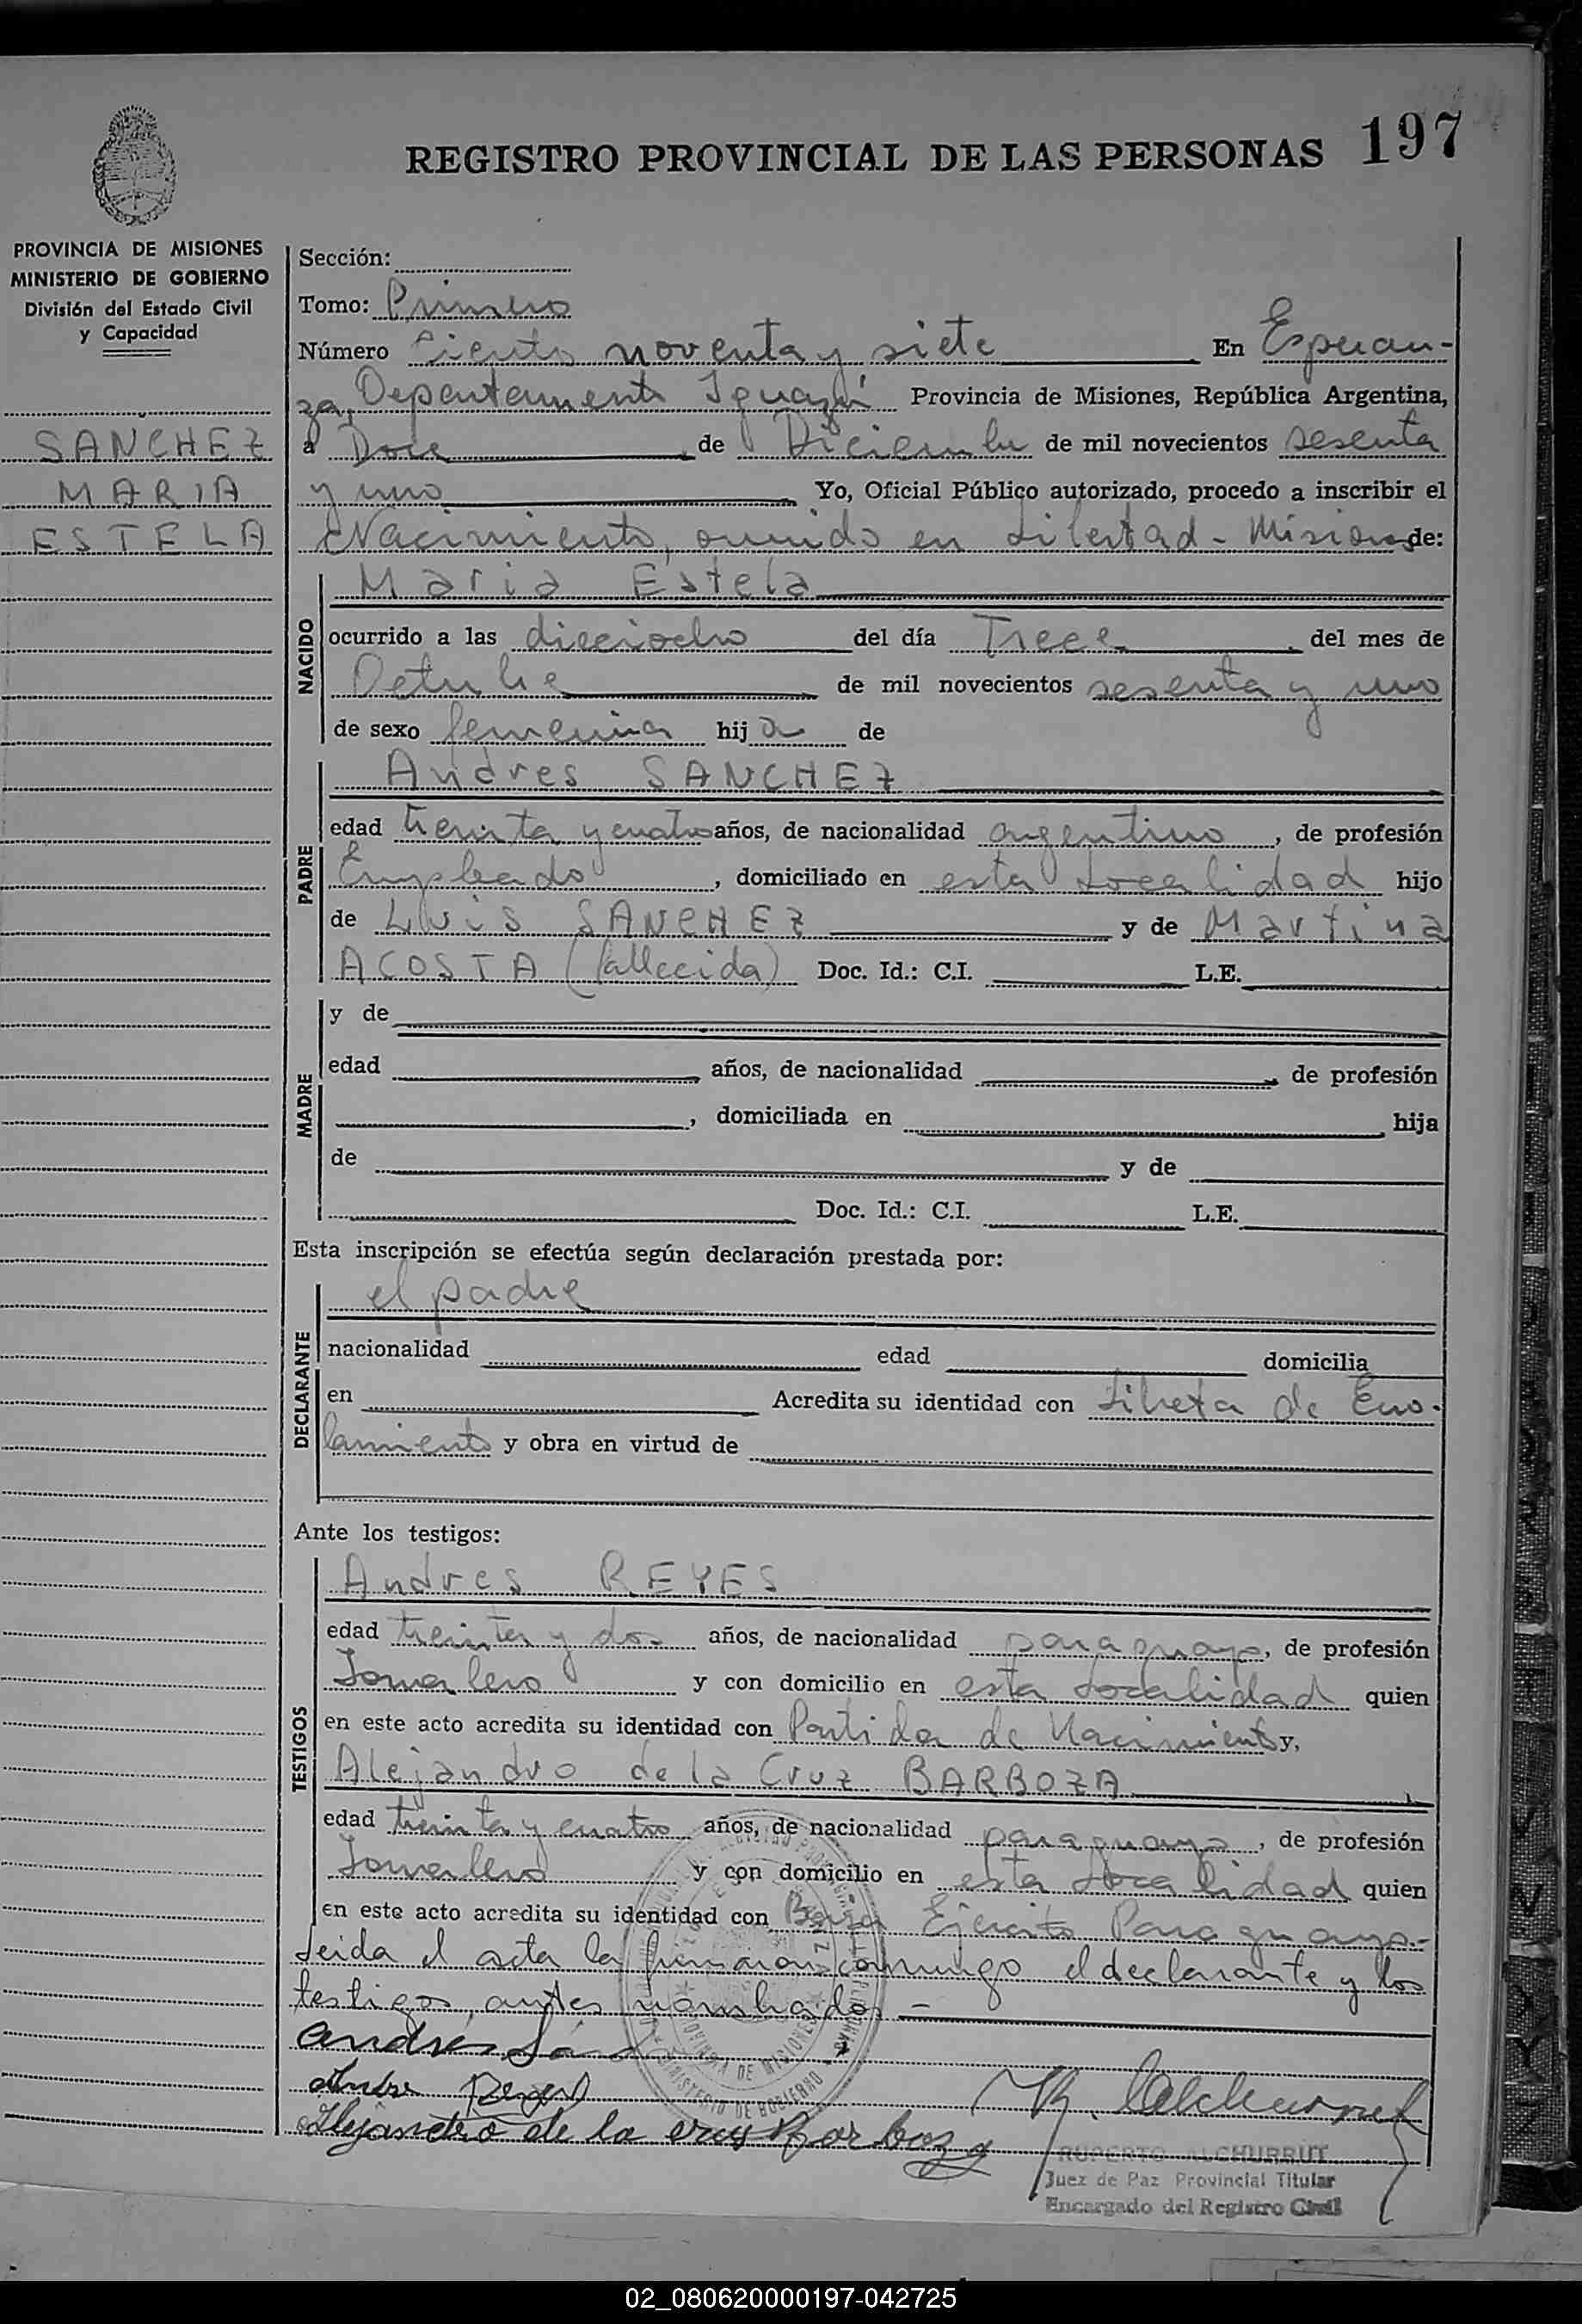 REGISTRO PROVINCIAL DE LAS PERSONAS 197
PROVINCIA DE MISIONES
MINISTERIO DE GOBIERNO
División del Estado Civil
y Capacidad
SANCHEZ
MARIA
ESTELA
Sección:
Tomo: Primero
Número Ciento noventa y siete En Esperan-
za, Departamento Iguazú Provincia de Misiones, República Argentina,
a Doce de Diciembre de mil novecientos sesenta
y uno Yo, Oficial Público autorizado, procedo a inscribir el
Nacimiento, ocurrido en Libertad - Misiones de:
NACIDO
Maria Estela
ocurrido a las dieciocho del día Trece del mes de
Octubre de mil novecientos sesenta y uno
de sexo femenina hija de
PADRE
Andres SANCHEZ
edad treinta y cuatro años, de nacionalidad argentino, de profesión
Empleado, domiciliado en esta Localidad hijo
de Luis SANCHEZ y de Martina
ACOSTA (fallecida) Doc. Id.: C.I. L.E.
MADRE
y de
edad años, de nacionalidad de profesión
, domiciliada en hija
de y de
Doc. Id.: C.I. L.E.
Esta inscripción se efectúa según declaración prestada por:
DECLARANTE
el padre
nacionalidad edad domicilia
en Acredita su identidad con Libreta de Enro-
lamiento y obra en virtud de
Ante los testigos:
TESTIGOS
Andres REYES
edad treinta y dos años, de nacionalidad paraguayo, de profesión
Jornalero y con domicilio en esta Localidad quien
en este acto acredita su identidad con Partida de Nacimiento y,
Alejandro de la Cruz BARBOZA
edad treinta y cuatro años, de nacionalidad paraguayo, de profesión
Jornalero y con domicilio en esta Localidad quien
en este acto acredita su identidad con Baja Ejercito Paraguayo.-
Leida el acta la firmaron conmigo el declarante y los
testigos antes nombrados -
Andrés Sán
Andre Reyes
Alejandro de la crus Barboza
R. Alchurrut
RUPERTO ALCHURRUT
Juez de Paz Provincial Titular
Encargado del Registro Civil
PROVINCIA DE MISIONES
MINISTERIO DE GOBIERNO
02_080620000197-042725